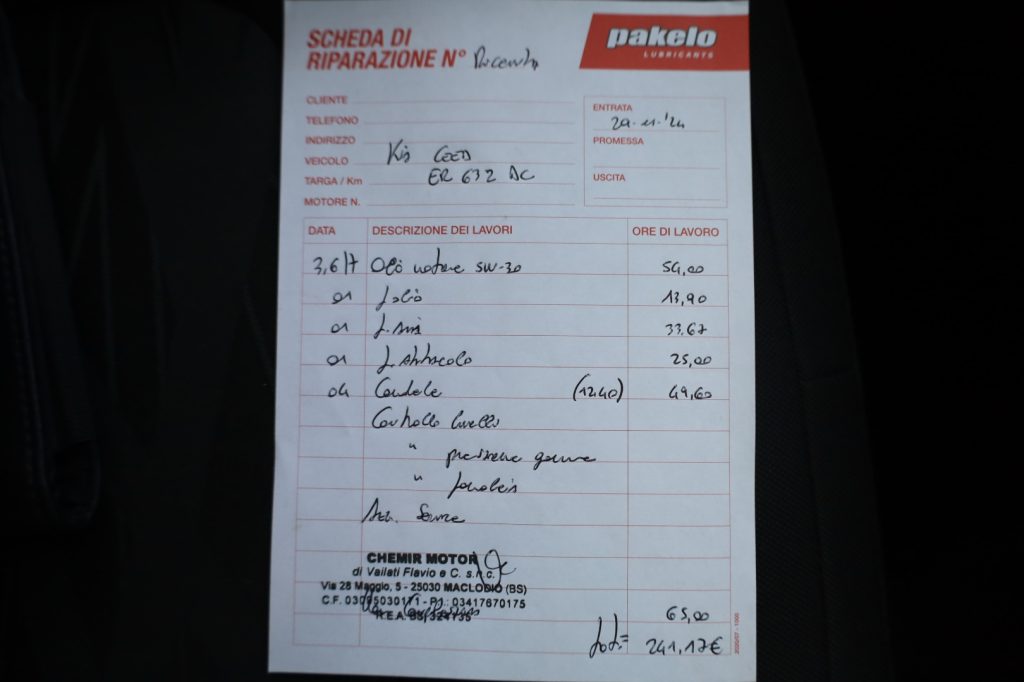 SCHEDA DI
RIPARAZIONE N°
pakelo
LUBRICANTS
CLIENTE
TELEFONO
INDIRIZZO
VEICOLO Kia CEED
TARGA / Km ER 632 AC
MOTORE N.
ENTRATA
29-11-'24
PROMESSA
USCITA
DATA DESCRIZIONE DEI LAVORI ORE DI LAVORO
3,6 lt Olio motore 5W-30 54,00
01 f. olio 13,90
01 f. Aria 33.67
01 f. Antipolo 25,00
04 Candele (12.40) 49,60
Controllo livelli
" pressione gomme
" fanaleria
Service
CHEMIR MOTOR
di Vailati Flavio e C. s.n.c.
Via 28 Maggio, 5 - 25030 MACLODIO (BS)
C.F. 03095030171 - P.I.: 03417670175
R.E.A. BS/ 324135
65,00
Tot. = 241,17€